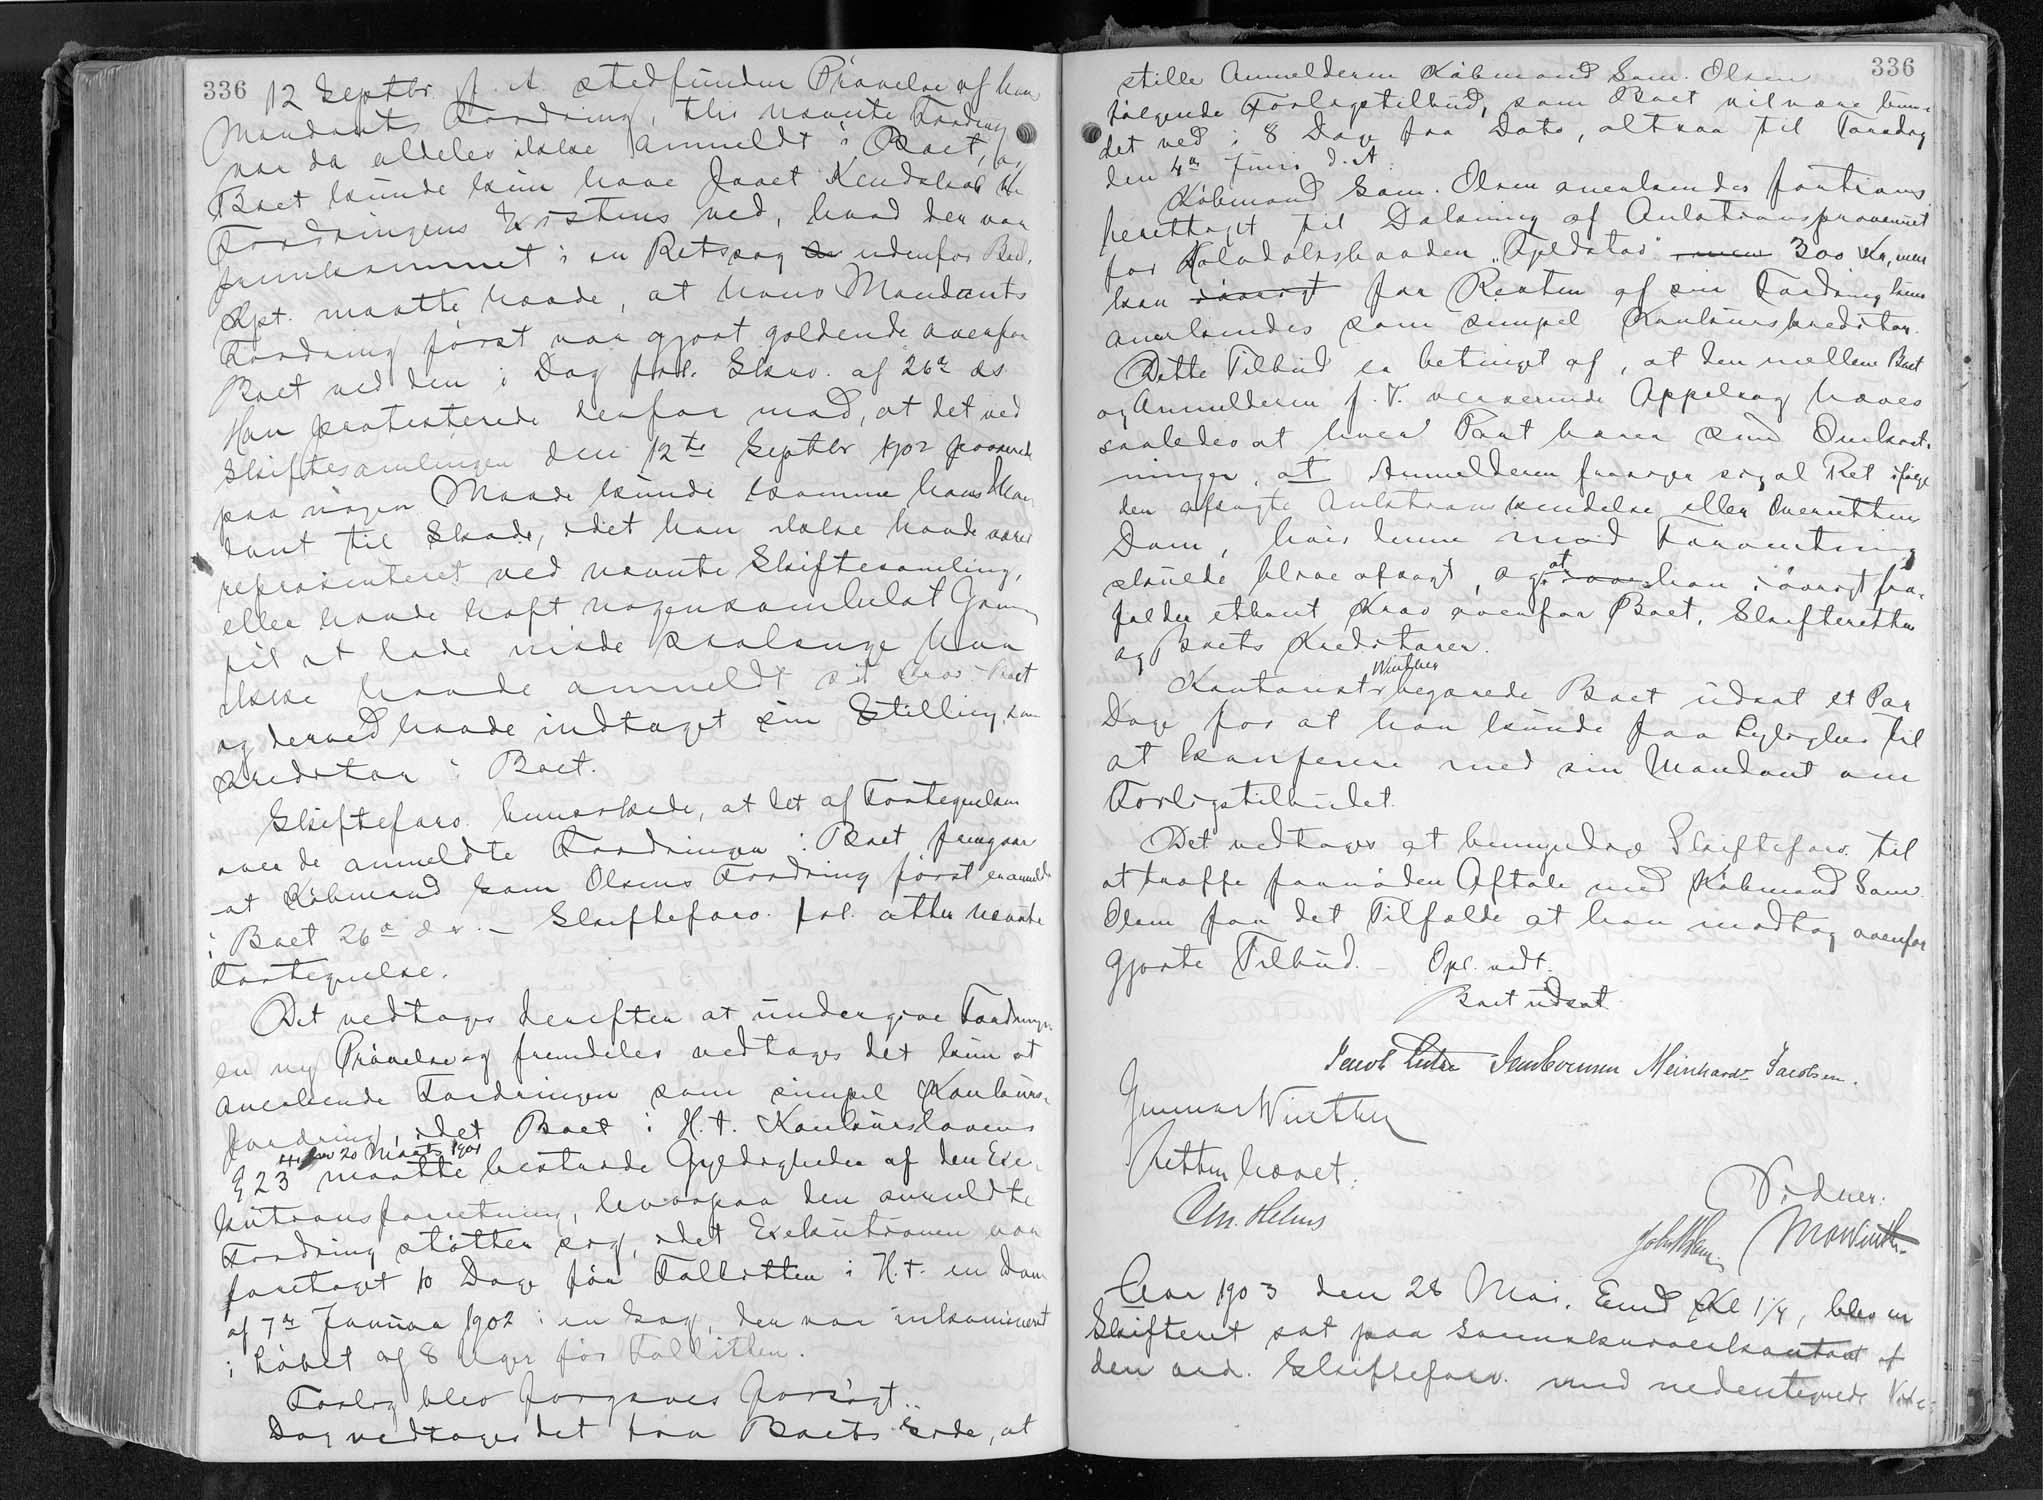 336
12 Septbr. f. A. stedfundne Prøvelse af hans
Mandants Fordring, thi nævnte Fordring
var da aldeles ikke anmeldt i Boet, og
Boet kunde kun have faaet Kendskab til
Fordringens Existens ved, hvad der var
fremkommet i en Retssag udenfor Boet.
Kpt. maatte hævde, at hans Mandants
Fordring først var gjort gældende overfor
Boet ved den i Dag frel. Skriv. af 26de ds.
Han protesterede derfor mod, at det ved
Skiftesamlingen den 12te Septbr 1902 passerede
paa nogen Maade kunde komme hans Man-
dant til Skade, idet han ikke havde været
repræsenteret ved nævnte Skiftesamling,
eller havde haft nogensomhelst Grund
til at lade møde saalænge han
ikke havde anmeldt sit Krav i Boet
og derved havde indtaget sin Stilling som
Kreditor i Boet.
Skifteforv. bemærkede, at det af Fortegnelsen
over de anmeldte Fordringer i Boet fremgaar
at Købmand Sam Olsens Fordring først er anmeldt
i Boet 26de ds. – Skifteforv. frel. atter nævnte
Fortegnelse.
Det vedtages derefter at undergive Fordringen
en ny Prøvelse og fremdeles vedtages det kun at
anerkende Fordringen som simpel Konkurs-
fordring, idet Boet i H. t. Konkurslovens
20 Marts 1901
§ 23 maatte bestride Gyldigheden af den Exe-
kutionsforretning, hvorpaa den anmeldte
Fordring støtter sig, idet Exekutionen var
foretaget 10 Dage før Fallitten i H. t. en Dom
af 7de Januar 1902 i en Sag, der var inkamineret
i Løbet af 8 Uger før Fallitten.
Forlig blev forgæves forsøgt.
Dog vedtages det fra Boets Side, at
336
stille Anmelderen Købmand Sam. Olsen
følgende Forligstilbud, som Boet vil være bun-
det ved i 8 Dage fra Dato, altsaa til Torsdag
den 4de Juni d. A.
Købmand Sam. Olsen anerkendes fortrins-
berettiget til Dækning af Auktionsprovenuet
for Sluppen "Fjeldstad" men 300 Kr, men
han iøvrigt for Resten af sin Fordring kun
anerkendes som simpel Konkurskreditor.
Dette Tilbud er betinget af, at den mellem Boet
og Anmelderen f. T. verserende Appelsag hæves
saaledes at hver Part bærer sine Omkost-
ninger, at Anmelderen frasiger sig al Ret ifølge
den afsagte Auktionskendelse eller Overrettens
Dom, hvis denne mod Forventning
skulde blive afsagt, og at han iøvrigt fra-
falder ethvert Krav overfor Boet, Skifteretten
og Boets Kreditorer.
Winther
Kontorist begærede Boet udsat et Par
Dage for at han kunde faa Lejlighed til
at konferere med sin Mandant om
Forligstilbudet.
Det vedtages at bemyndige Skifteforv. til
at træffe fornøden Aftale med Købmand Sam
Olsen for det Tilfælde at han modtog ovenfor
gjorte Tilbud. – Opl. vedt.
Boet udsat.
Jacob Lützen Meinhardt Jacobsen.
Gunnar Winther
Retten hævet.
Chr. Helms
Vidner:
Aar 1903 den 28 Mai, Emd Kl 1¼, blev en
Skifteret sat paa Sorenskriverkontoret af
den ord. Skifteforv. med nedentegnede Vidne-